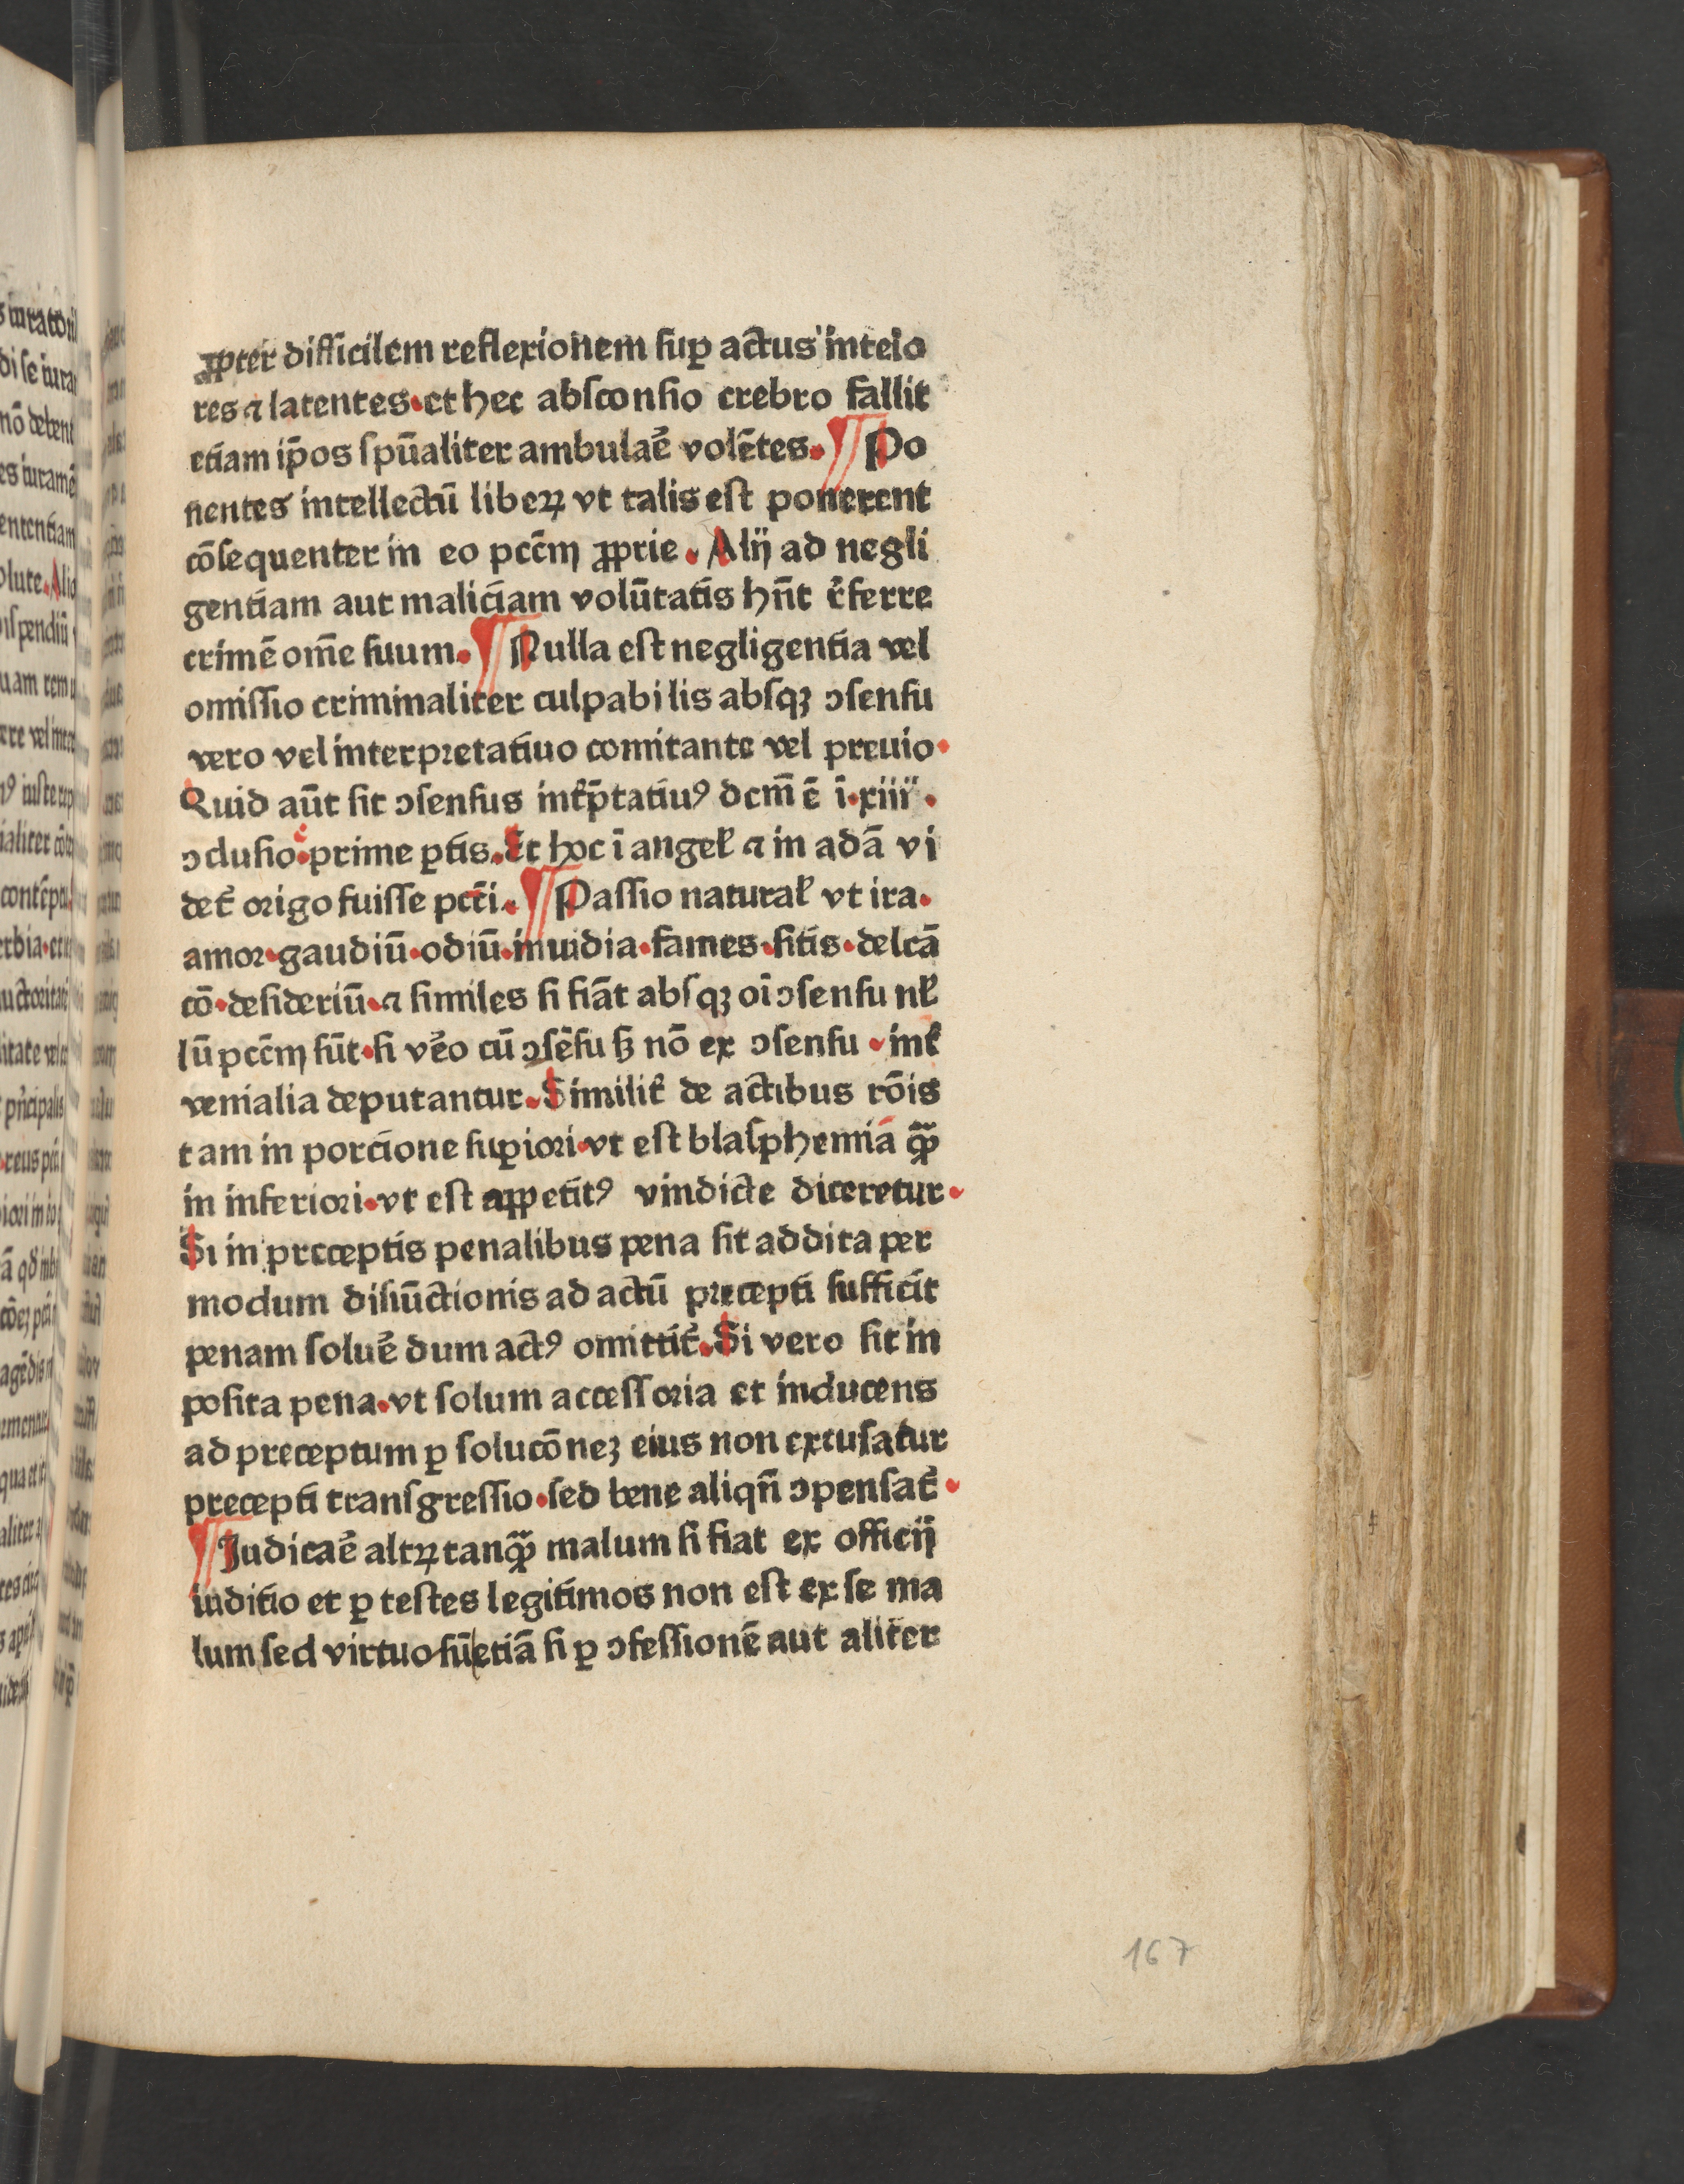 ꝓpter difficilem reflexionem suꝑ actus inteío
res ⁊ latentes. et hec absconsio crebro fallit
etiam ip̄os spūaliter ambulaē volētes. ¶ Po
nentes intellectū libeꝝ vt talis est ponerent
cōsequenter in eo pccm̄ ꝓprie. Alij ad negli
gentiam aut maliciam volūtatis hn̄t r̄ferre
crimē om̄e suum. ¶ Nulla est negligentia vel
omissio criminaliter culpabilis absqꝫ ↄsensu
vero vel interpretatiuo comitante vel preuio.
Quid aūt sit ↄsensus intp̄tatiuꝰ dcm̄ ē ī. xiiii.
ↄclusio. prime ꝑtis. Et hoc ī angeł ⁊ in adā vi
det̄ origo fuisse pctī. ¶ Passio naturał vt ira.
amor. gaudiū. odiū. inuidia. fames. sitis. delcā
cō. desideriū. ⁊ similes si fiāt absqꝫ oī ↄsensu nł
lū pccm̄ sūt. si vēo cū ↄsēsu sꝫ nō ex ↄsensu. int̄
venialia deputantur. Similit̄ de actibus rōis
tam in porcione suꝑiori. vt est blasphemia qꝫ̄
in inferiori. vt est appetitꝰ vindicte diceretur.
Si in preceptis penalibus pena sit addita per
modum disiūctionis ad actū precepti sufficit
penam soluē dum actꝰ omittit̄. Si vero sit in
posita pena. vt solum accessoria et inducens
ad preceptum ꝑ solucōneꝫ eius non excusatur
precepti transgressio. sed bene aliqn̄ ↄpensat̄.
¶ Iudicaē altꝝ tanqꝫ̄ malum si fiat ex officij
iuditio et ꝑ testes legitimos non est ex se ma
lum sed virtuosū etiā si ꝑ ↄfessionē aut aliter
167